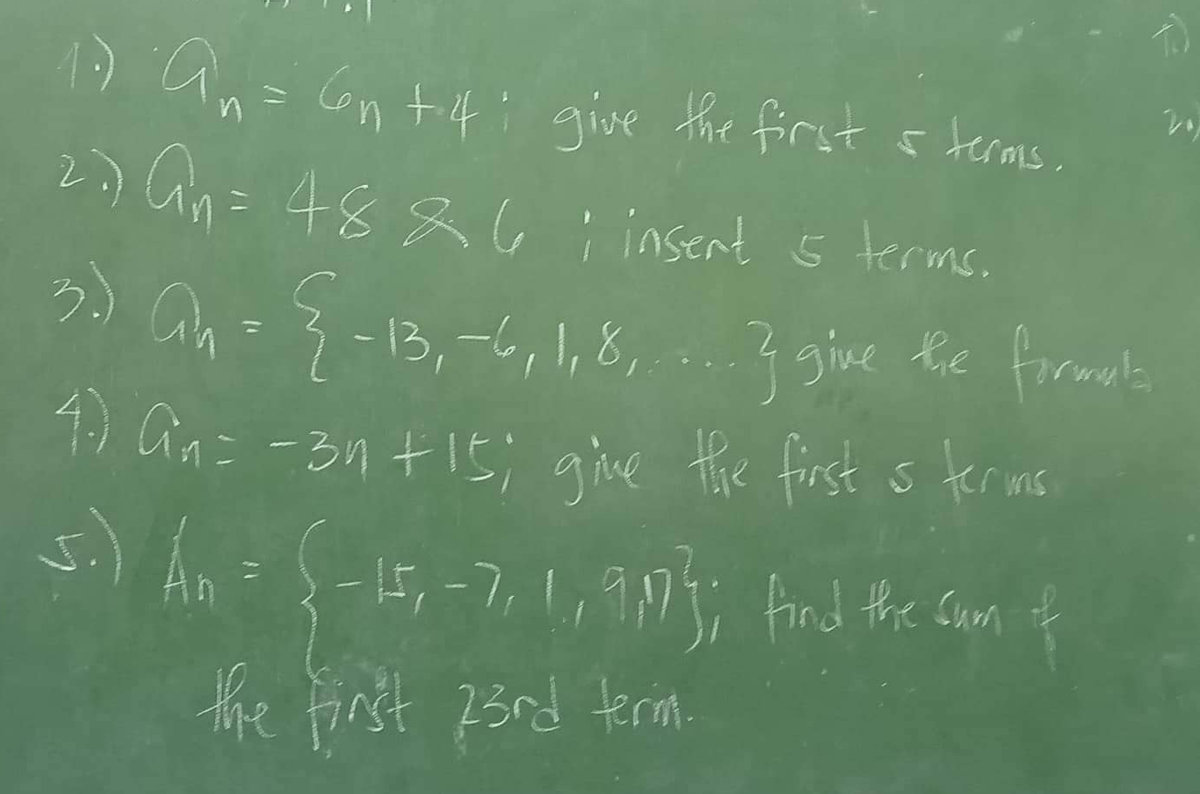 1.) an = 6n + 4; give the first 5 terms.
2.) an = 48 & 6 ; insert 5 terms.
3.) an = { -13, -6, 1, 8, .... } give the formula
4.) an = -3n + 15; give the first 5 terms
5.) An = { -15, -7, 1, 9, 17 }; find the sum of
the first 23rd term.
1.)
2.)